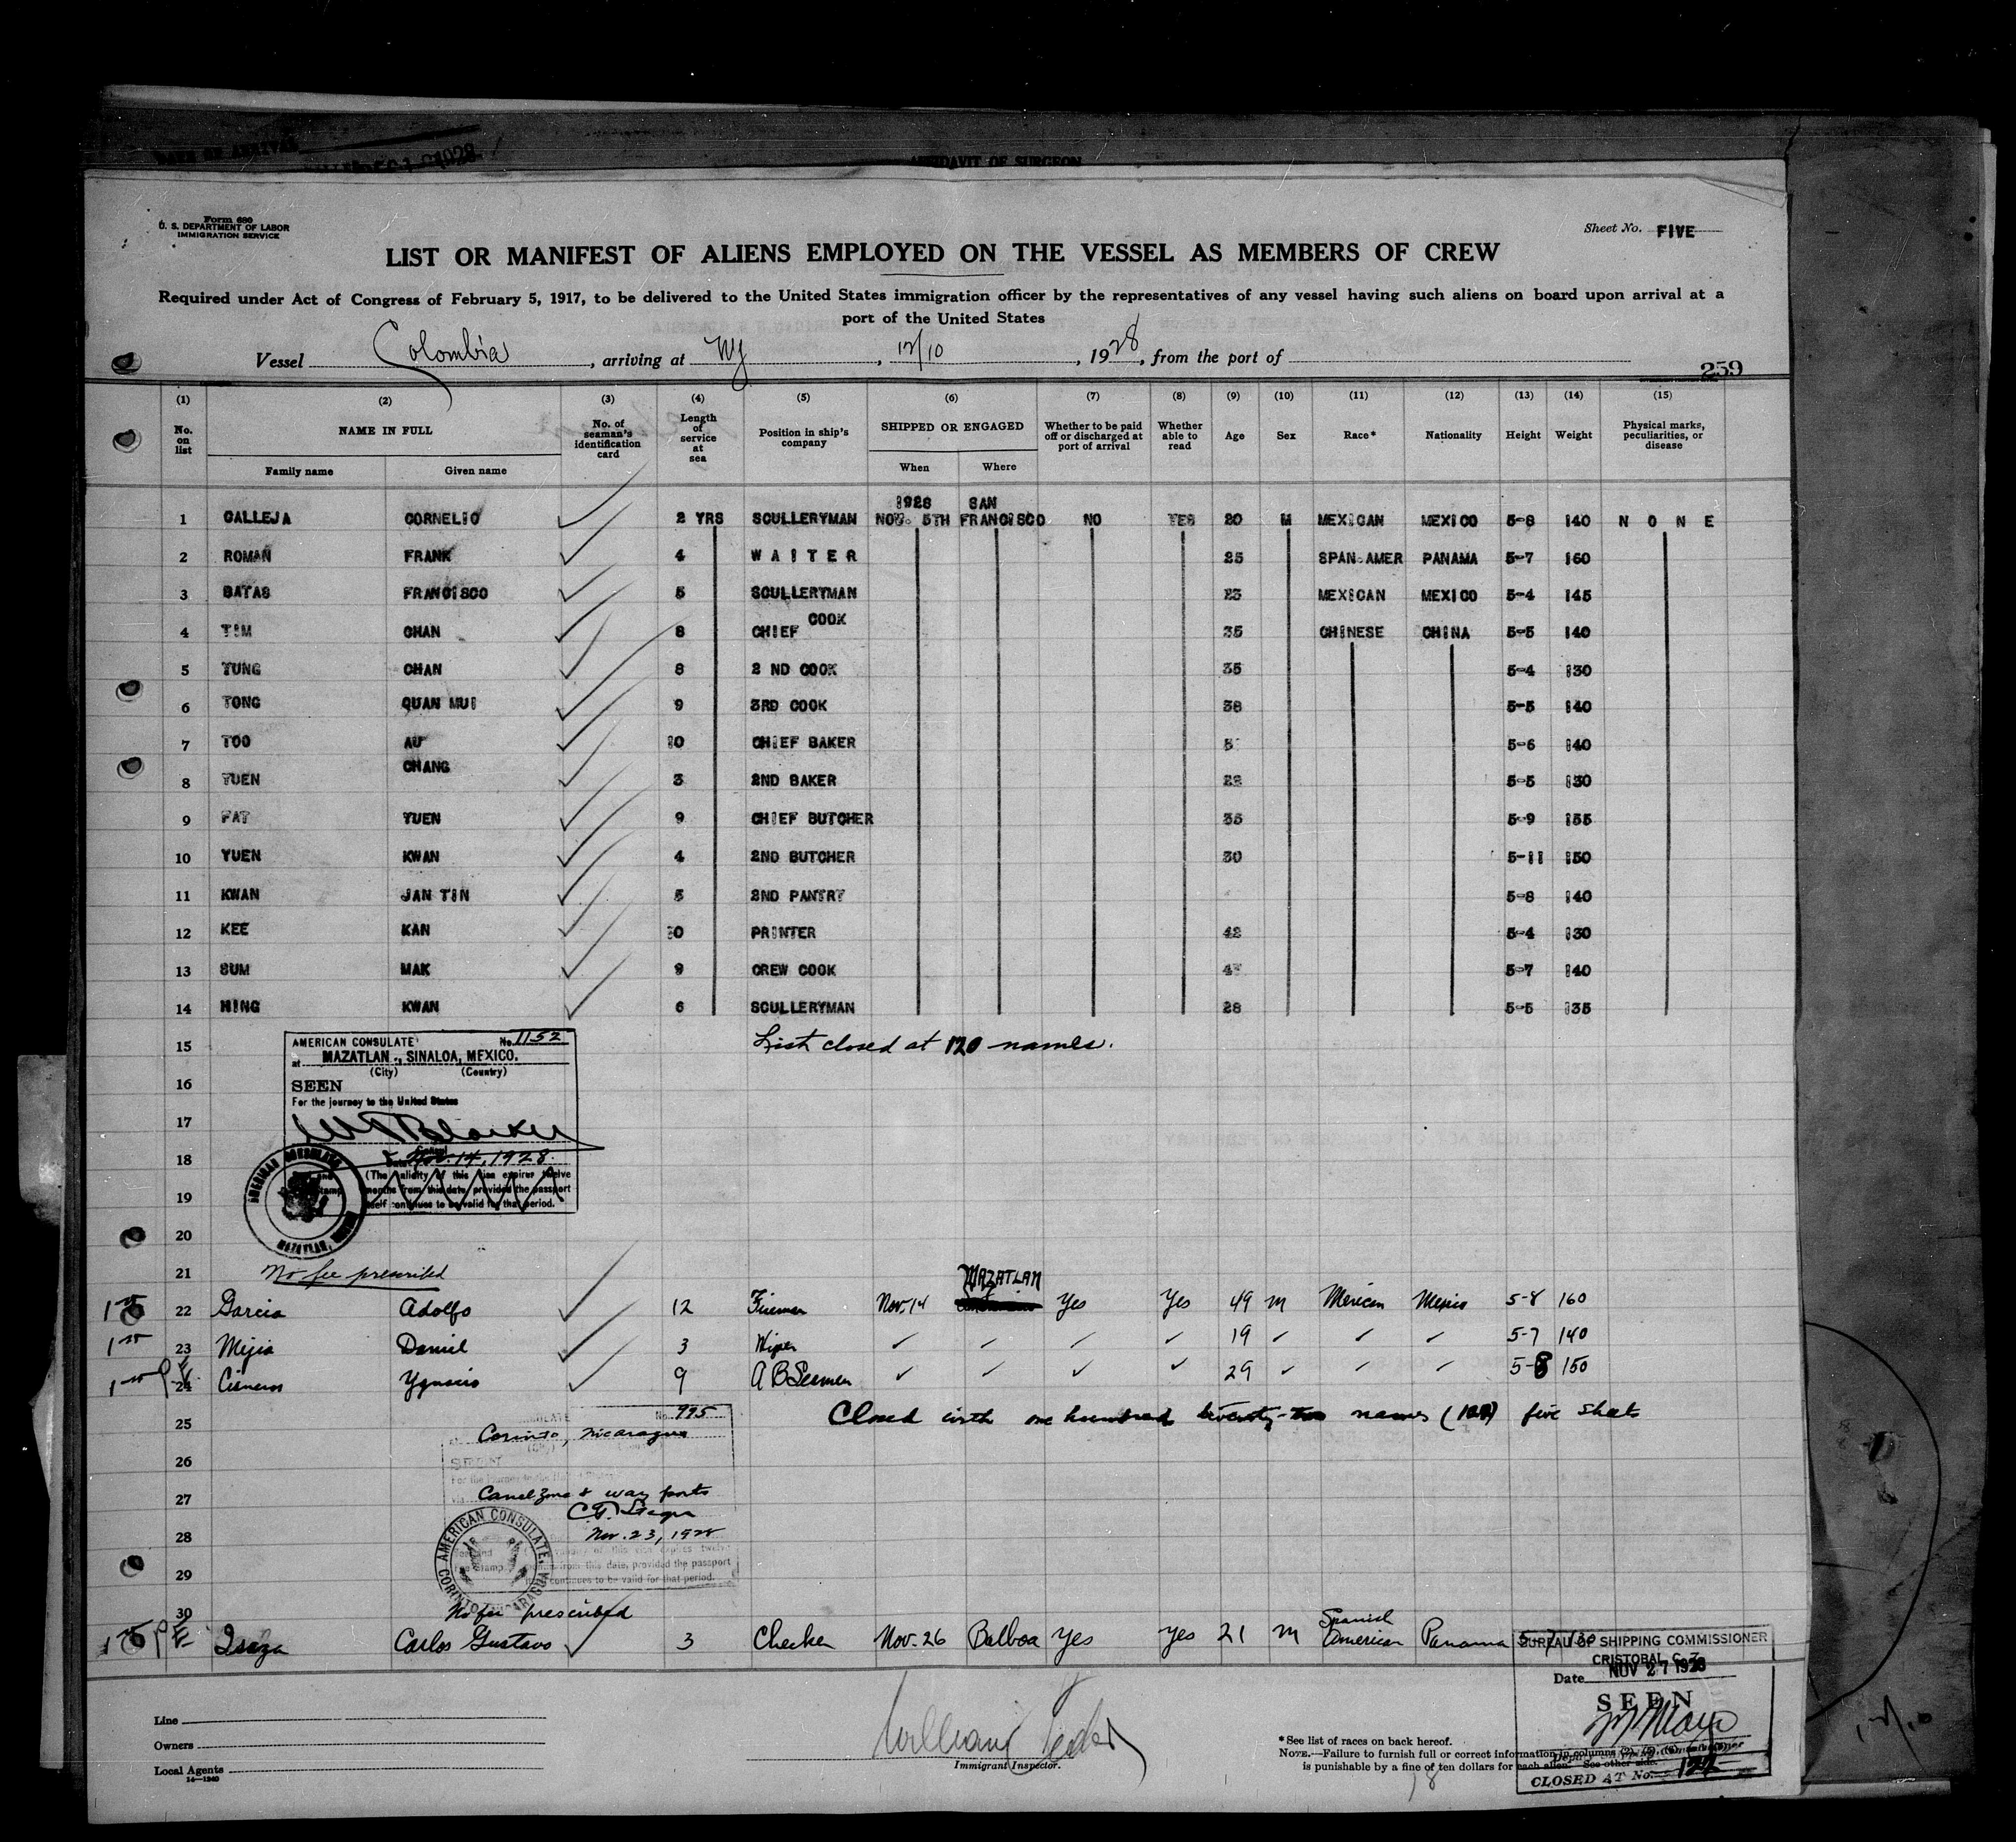 AFFIDAVIT OF SURGEON
Form 680
U. S. DEPARTMENT OF LABOR
IMMIGRATION SERVICE
Sheet No. FIVE
LIST OR MANIFEST OF ALIENS EMPLOYED ON THE VESSEL AS MEMBERS OF CREW
Required under Act of Congress of February 5, 1917, to be delivered to the United States immigration officer by the representatives of any vessel having such aliens on board upon arrival at a
port of the United States
Vessel Colombia, arriving at NY, 12/10, 1928, from the port of
259
(1) (2) (3) (4) (5) (6) (7) (8) (9) (10) (11) (12) (13) (14) (15)
No. on list NAME IN FULL Family name Given name No. of seaman's identification card Length of service at sea Position in ship's company SHIPPED OR ENGAGED When Where Whether to be paid off or discharged at port of arrival Whether able to read Age Sex Race* Nationality Height Weight Physical marks, peculiarities, or disease
1928 SAN
1 CALLEJA CORNELIO 2 YRS SCULLERYMAN NOV. 5TH FRANCISCO NO YES 20 M MEXICAN MEXICO 5-8 140 N O N E
2 ROMAN FRANK 4 W A I T E R 25 SPAN.AMER PANAMA 5-7 160
3 BATAS FRANCISCO 5 SCULLERYMAN 23 MEXICAN MEXICO 5-4 145
4 TIM CHAN 8 CHIEF COOK 35 CHINESE CHINA 5-5 140
5 TUNG CHAN 8 2 ND COOK 35 5-4 130
6 TONG QUAN MUI 9 3RD COOK 38 5-5 140
7 TOO AU 10 CHIEF BAKER 5-6 140
8 YUEN CHANG 3 2ND BAKER 22 5-5 130
9 FAT YUEN 9 CHIEF BUTCHER 35 5-9 155
10 YUEN KWAN 4 2ND BUTCHER 30 5-11 150
11 KWAN JAN TIN 5 2ND PANTRY 5-8 140
12 KEE KAN 30 PRINTER 42 5-4 130
13 SUM MAK 9 CREW COOK 5-7 140
14 HING KWAN 6 SCULLERYMAN 28 5-5 135
15 List closed at 120 names.
AMERICAN CONSULATE No. 1152
at MAZATLAN., SINALOA, MEXICO.
(City) (Country)
16
SEEN
For the journey to the United States
17
18
Nov. 14, 1928.
(The validity of this visa expires twelve
19
months from this date, provided the passport
itself continues to be valid for that period.
AMERICAN CONSULATE
MAZATLAN,
20
21 No fee prescribed
MAZATLAN
22 Garcia Adolfo 12 Fireman Nov. 14 Yes Yes 49 M Mexican Mexico 5-8 160
23 Mejia Daniel 3 Wiper 19 5-7 140
24 Cisneros Ygnacio 9 A B Seamen 29 5-8 150
25 Closed with one hundred twenty-two names (122) five sheets
No. 995
Corinto, Nicaragua
26
27
Canal Zone & way ports
28
Nov. 23, 1928
29
from this date, provided the passport
continues to be valid for that period.
AMERICAN CONSULATE,
CORINTO, NICARAGUA
30
No fee prescribed
Isaza Carlos Gustavo 3 Checker Nov. 26 Balboa Yes Yes 21 M Spanish American Panama 5-7 130
BUREAU OF SHIPPING COMMISSIONER
CRISTOBAL C. Z.
Date NOV 27 1928
SEEN
CLOSED AT No. 122
Line
Owners
Local Agents
14—1240
Immigrant Inspector.
*See list of races on back hereof.
NOTE.—Failure to furnish full or correct information in columns (2), (5), (6)
is punishable by a fine of ten dollars for each alien. See other side.